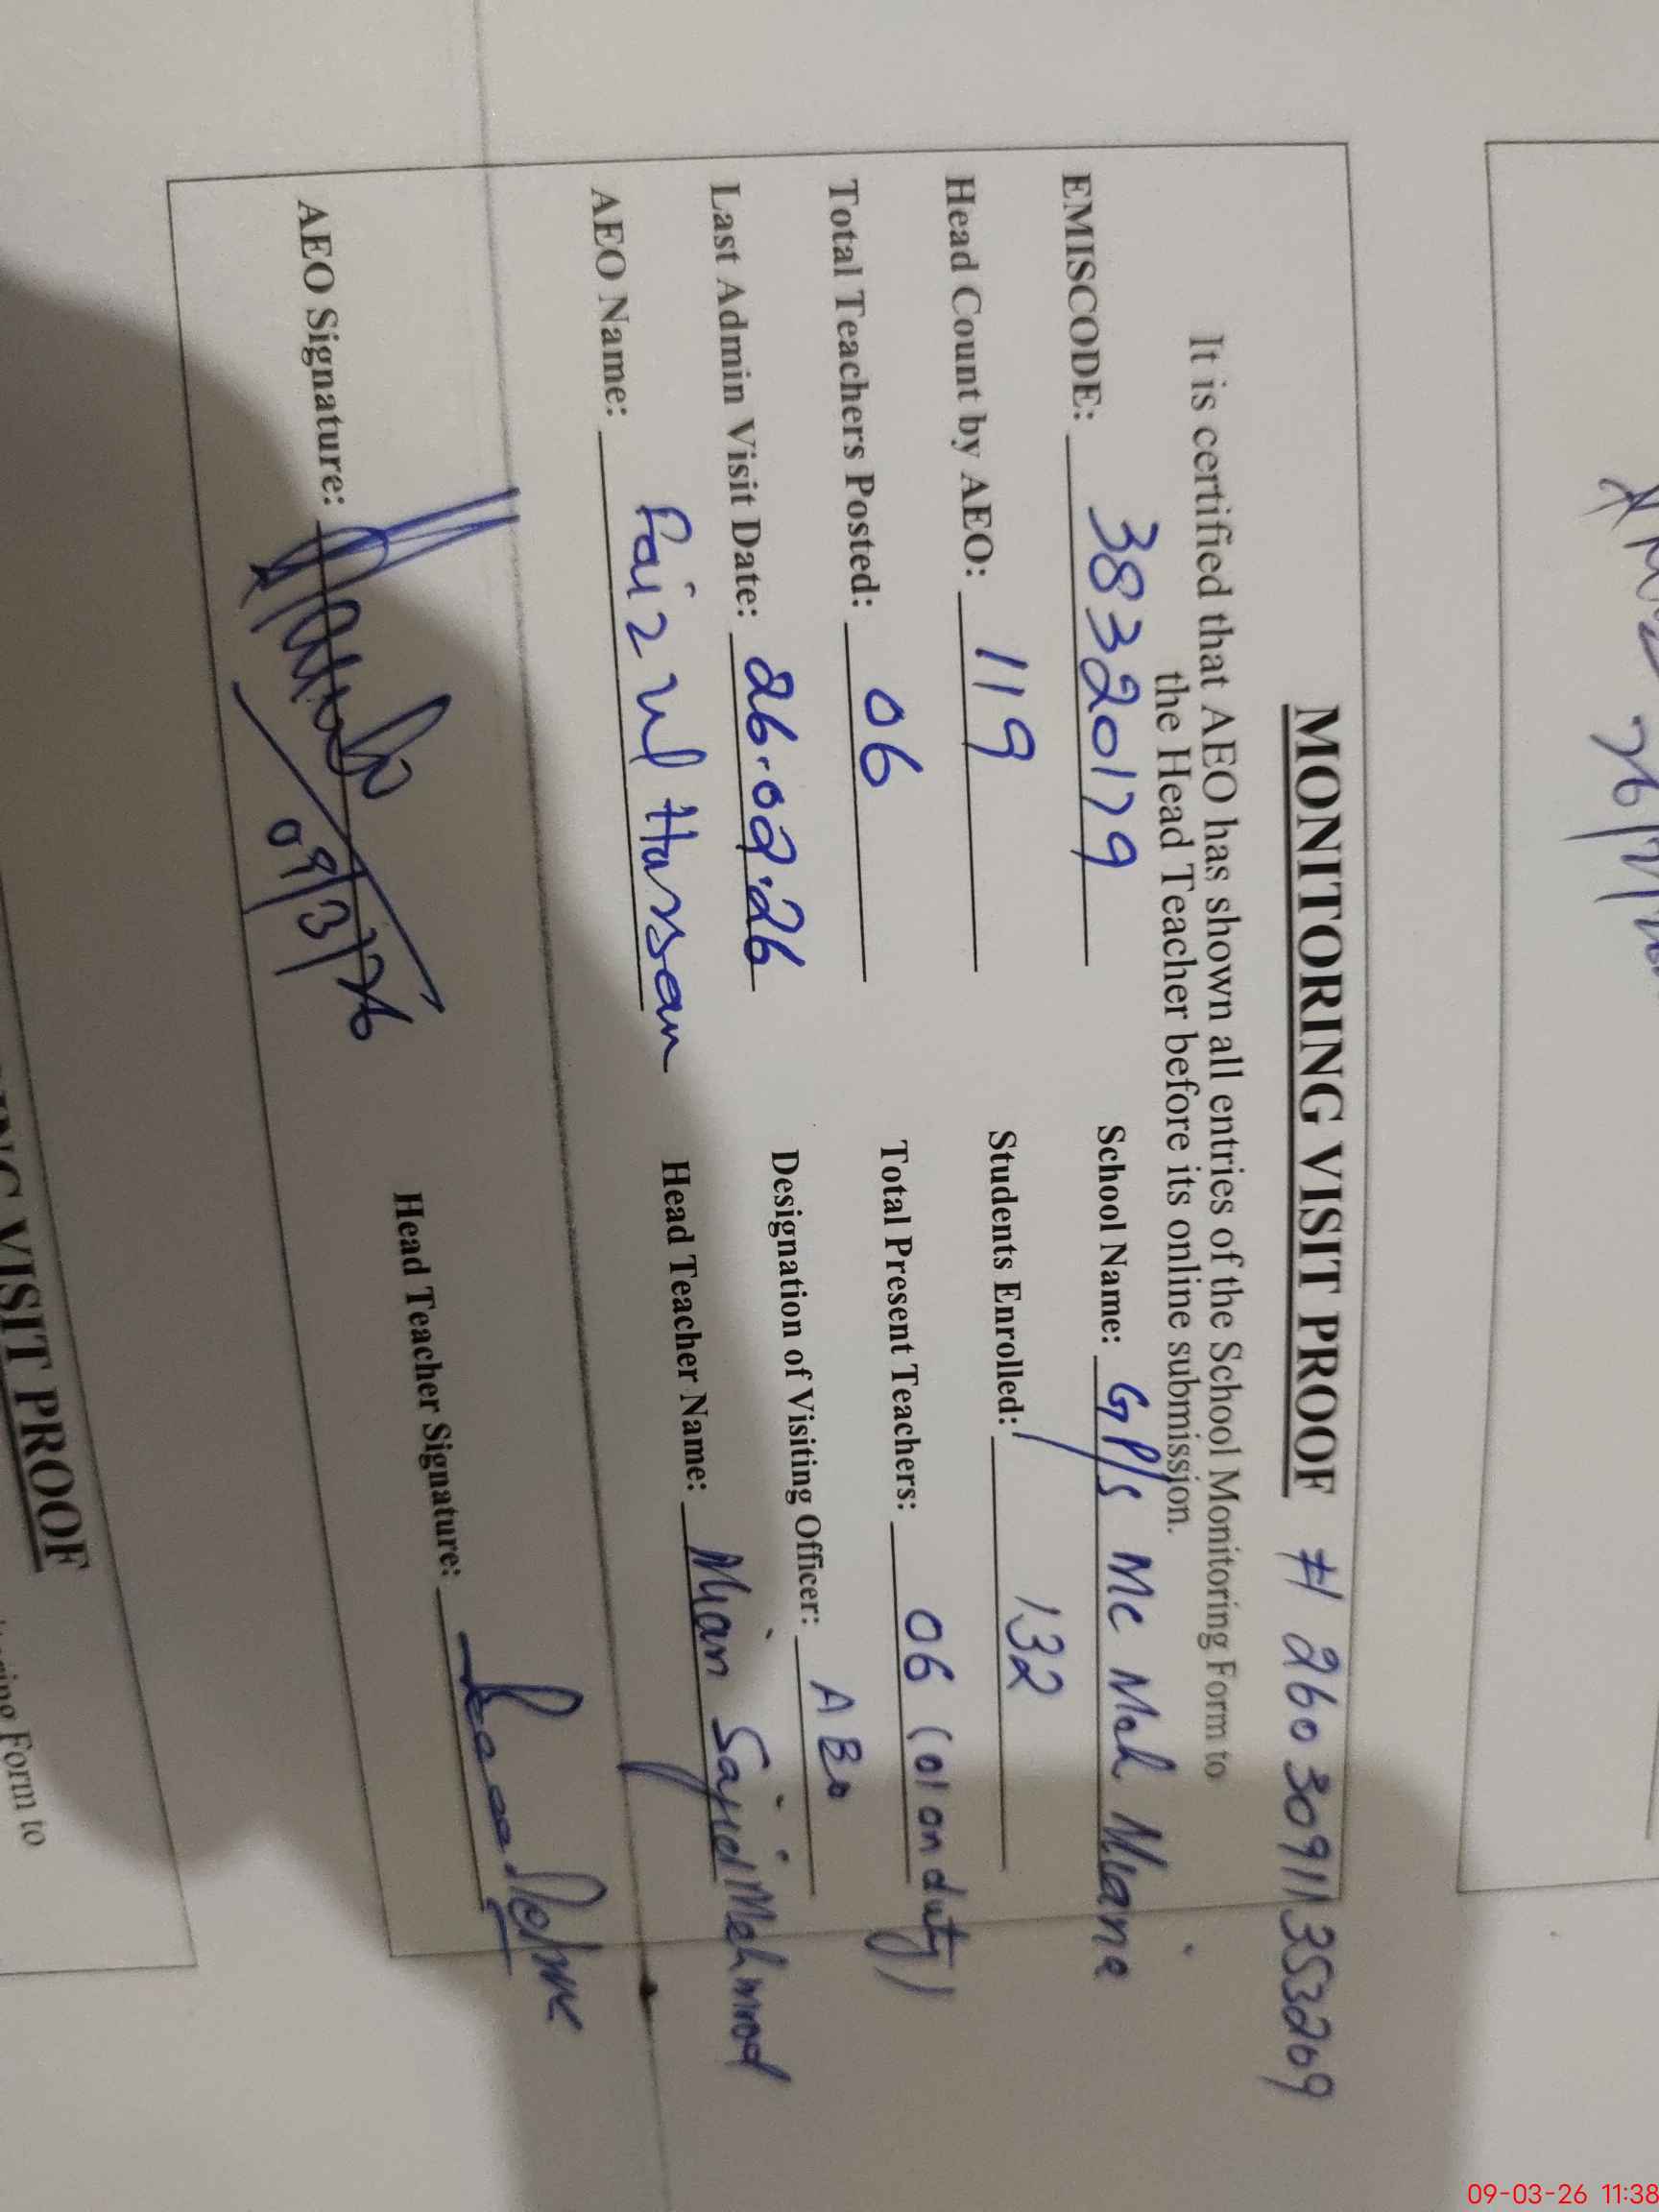 MONITORING VISIT PROOF # 26030911353269
It is certified that AEO has shown all entries of the School Monitoring Form to
the Head Teacher before its online submission.
EMISCODE: 38320179 School Name: GP/s Mc Moh. Miana
Head Count by AEO: 119 Students Enrolled: 132
Total Teachers Posted: 06 Total Present Teachers: 06 (01 on duty)
Last Admin Visit Date: 26.02.26 Designation of Visiting Officer: AEO
AEO Name: Faiz ul Hassan Head Teacher Name: Mian Sajid Mehmood
AEO Signature: 09/3/26 Head Teacher Signature:
VISIT PROOF
Form to
09-03-26 11:38